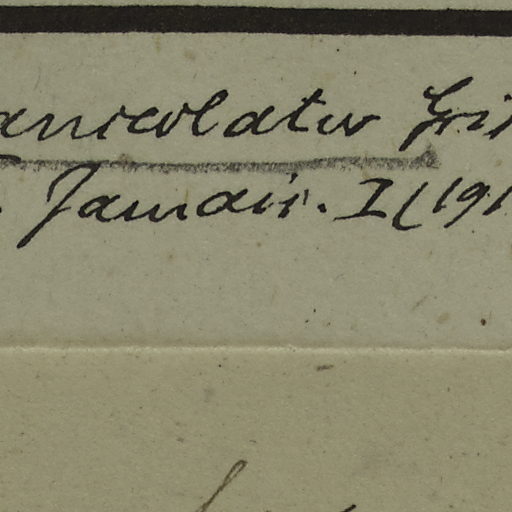 aniculatus Gris
Jamaic. I (191